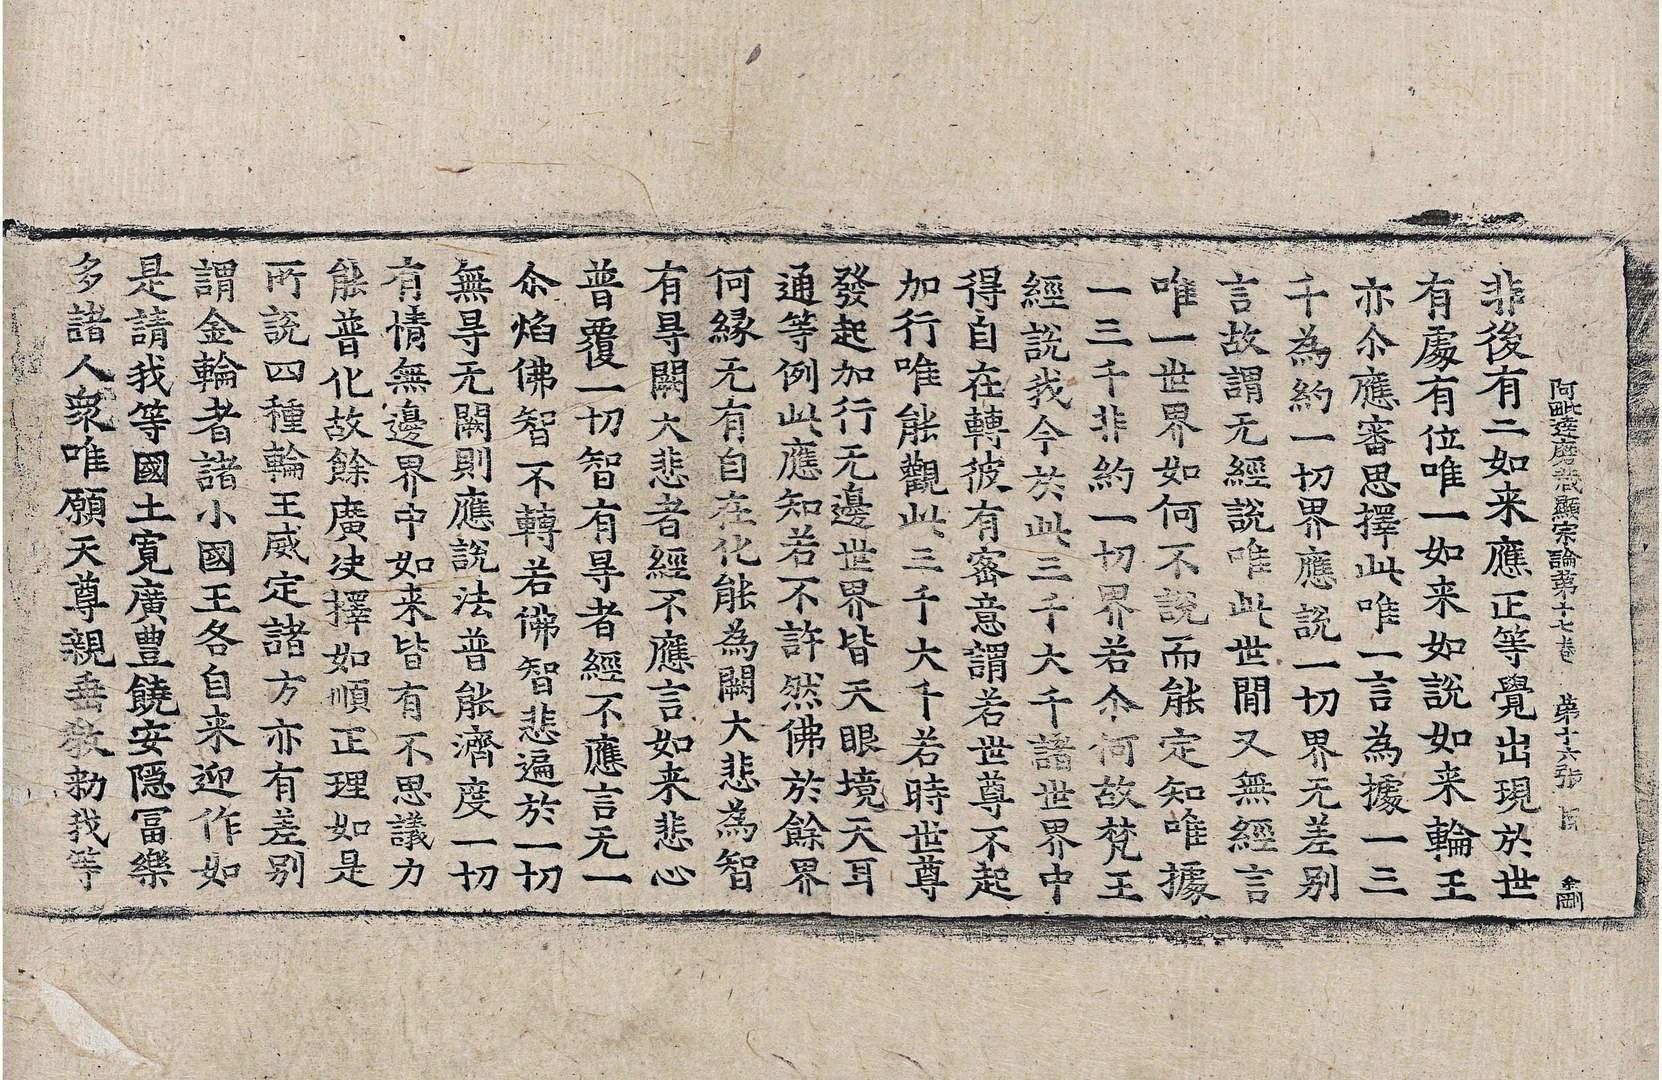 阿毗達磨藏顯宗論第十七卷 第十六張 金剛
非後有二如来應正等覺出現於世
有處有位唯一如来如說如来輪王
亦尒應審思擇此唯一言為據一三
千為約一切界應說一切界无差别
言故謂无經說唯此世間又無經言
唯一世界如何不說而能定知唯據
一三千非約一切界若尒何故梵王
經說我今於此三千大千諸世界中
得自在轉彼有密意謂若世尊不起
加行唯能觀此三千大千若時世尊
發起加行无邊世界皆天眼境天耳
通等例此應知若不許然佛於餘界
何縁无有自在化能為闕大悲為智
有㝵闕大悲者經不應言如来悲心
普覆一切智有㝵者經不應言无一
尒焰佛智不轉若佛智悲遍於一切
無㝵无闕則應說法普能濟度一切
有情無邊界中如来皆有不思議力
能普化故餘廣決擇如順正理如是
所說四種輪王威定諸方亦有差别
謂金輪者諸小國王各自来迎作如
是請我等國土寬廣豊饒安隱冨樂
多諸人衆唯願天尊親垂教勅我等